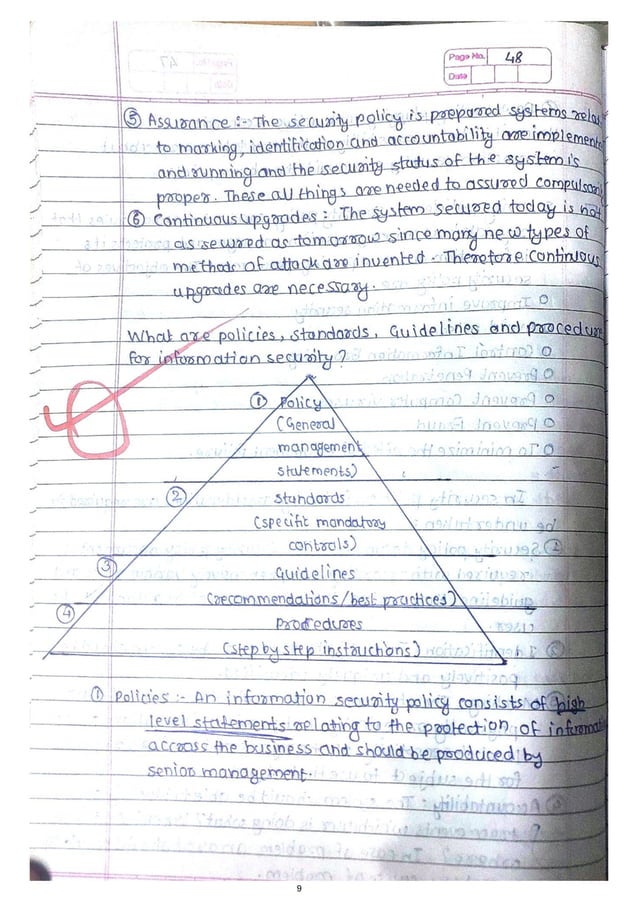 Page No. 48
Date
⑤ Assurance :- The security policy is prepared systems relat
to marking, identification and accountability are implemente
and running and the security status of the system is
proper. These all things are needed to assured compulsari
⑥ Continuous upgrades : The system secured today is not
as secured as tomorrow since many new types of
methods of attack are invented. Therefore continuous
upgrades are necessary.
What are policies, standards, Guidelines and procedure
for information security?
① Policy
(General
management
statements)
② standards
(specific mandatory
controls)
③ Guidelines
(recommendations/best practices)
④ Procedures
(step by step instructions)
① Policies :- An information security policy consists of high
level statements relating to the protection of informati
accross the business and should be produced by
senior management.
9